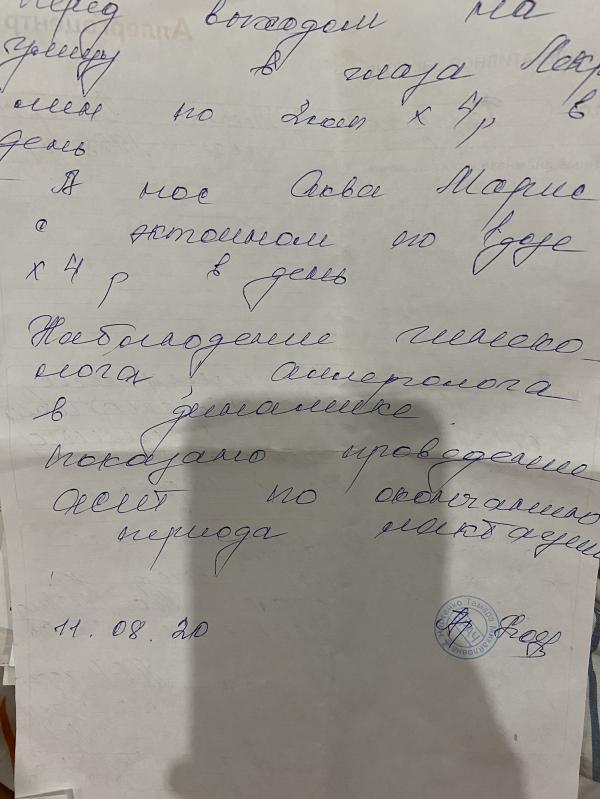 Перед выходом на
улицу в глаза Лекро
лин по 2кап х 4 р в
день
В нос Аква Марис
с эктоином по 1дозе
х 4 р в день
Наблюдение гинеко-
лога, аллерголога
в динамике.
Показано проведение
АСИТ по окончанию
периода лактации
11.08.20
Тамара Михайловна
Аллергоцентр